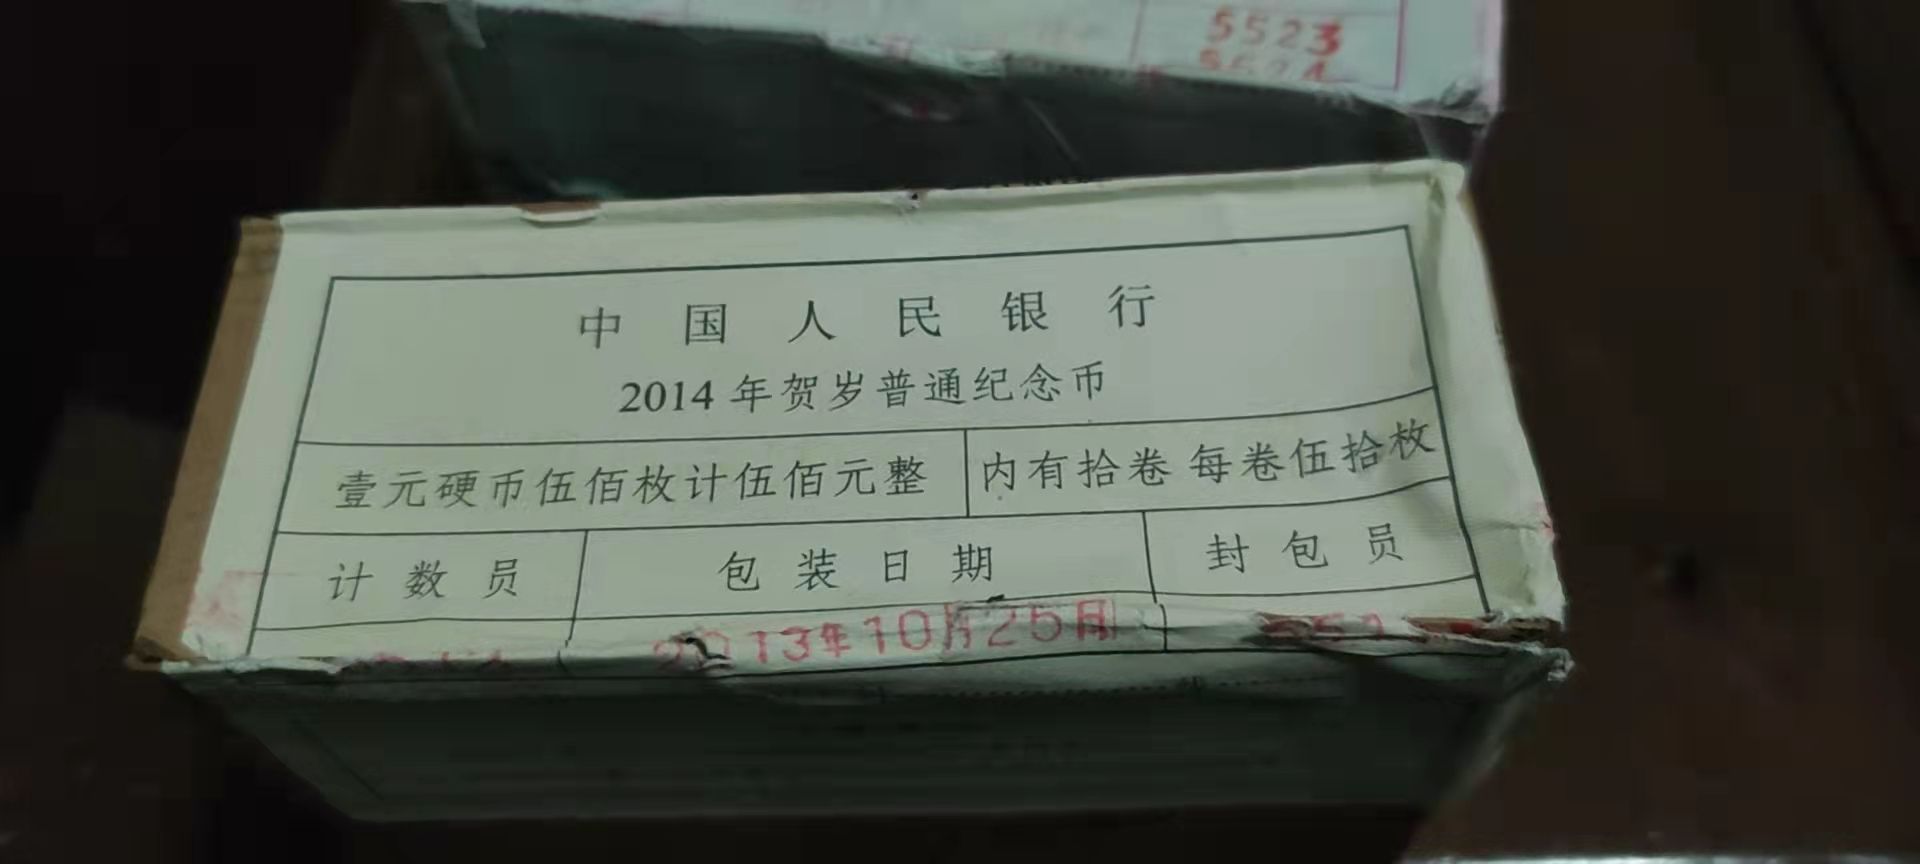 5523
中国人民银行
2014年贺岁普通纪念币
壹元硬币伍佰枚计伍佰元整 内有拾卷 每卷伍拾枚
计数员 包装日期 封包员
2013年10月25日